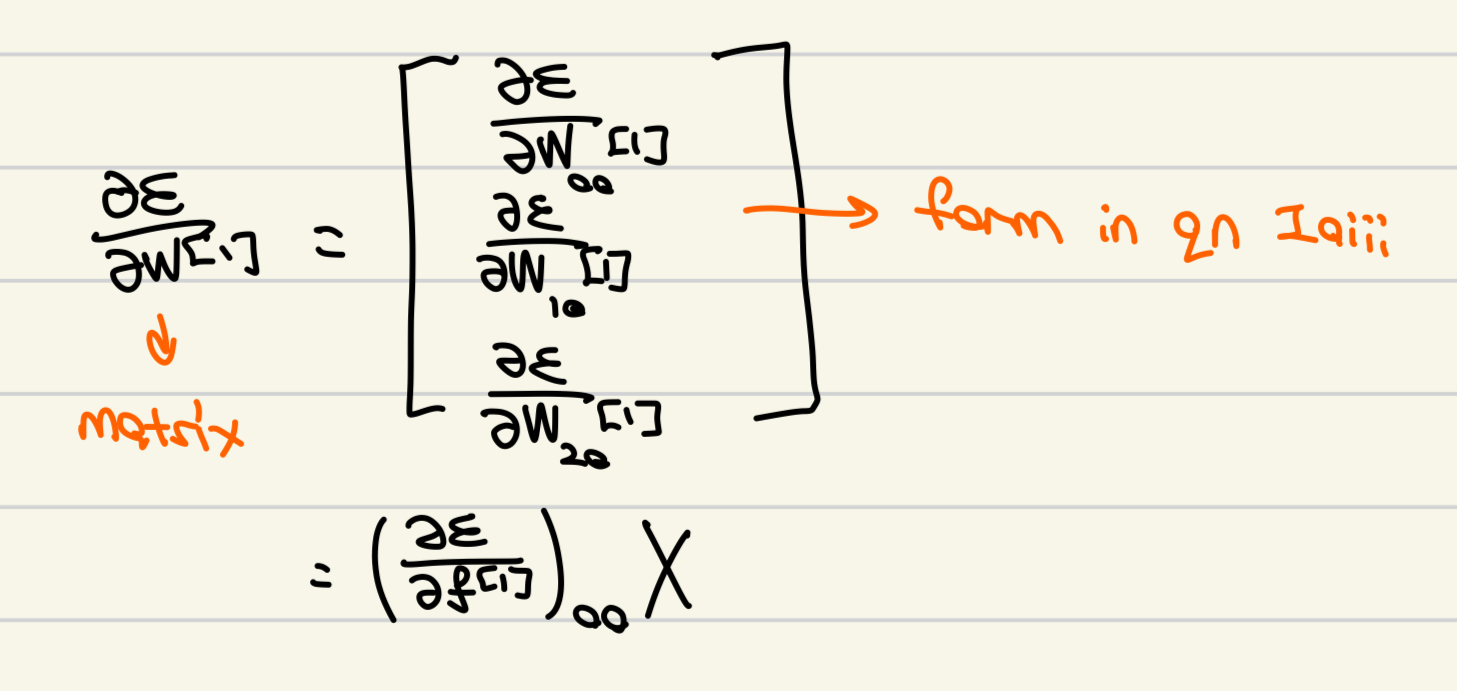 ∂ε/∂W[1] = [ ∂ε/∂W₀₀[1]
∂ε/∂W₁₀[1]
∂ε/∂W₂₀[1] ] → form in qn Iaiii
↓
matrix
= (∂ε/∂f[1])₀₀ X